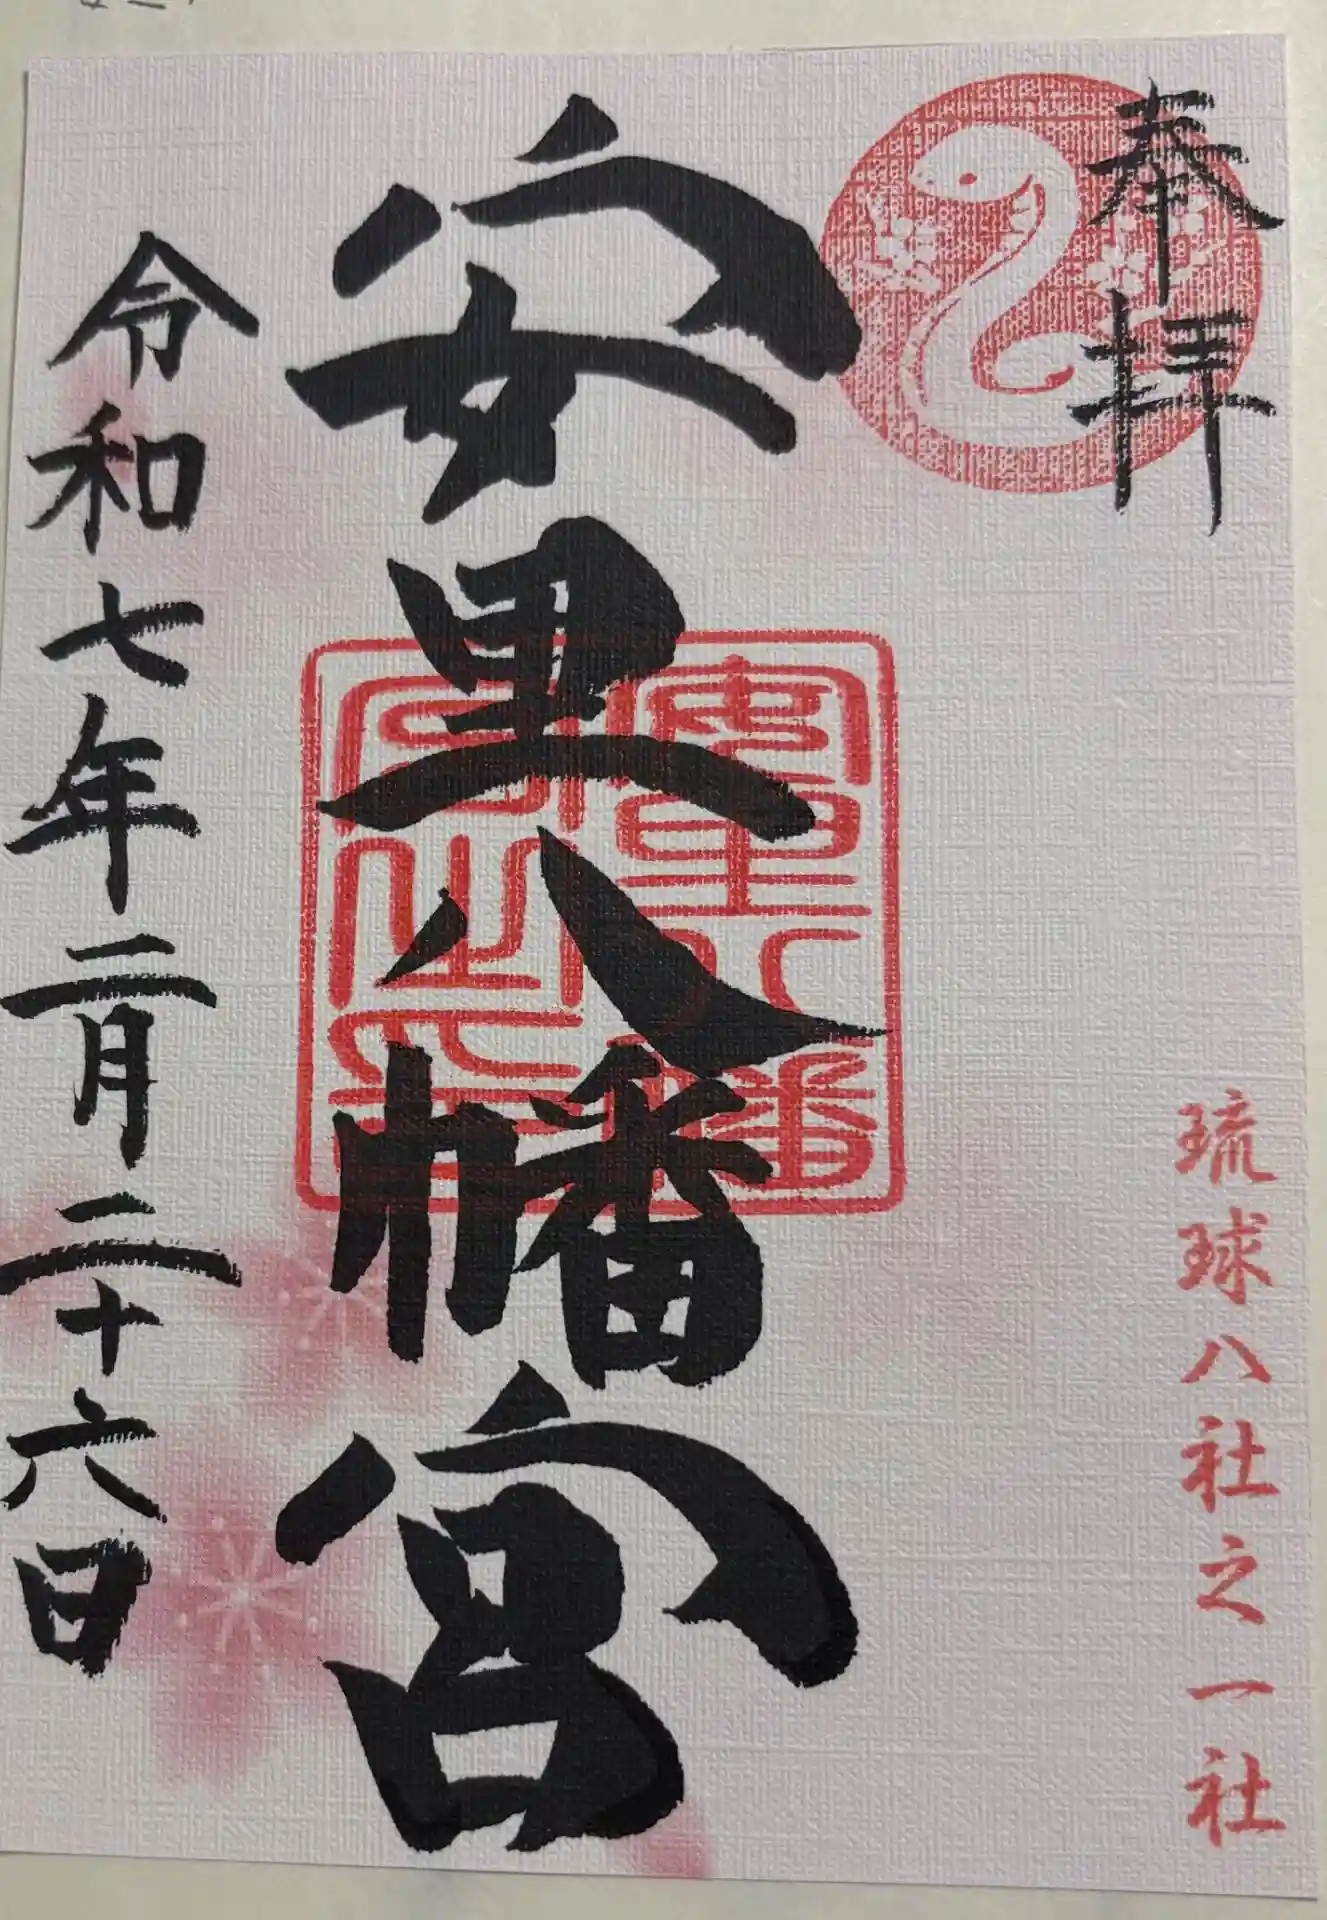 奉拝
琉球八社之一社
安里八幡宮
令和七年二月二十六日